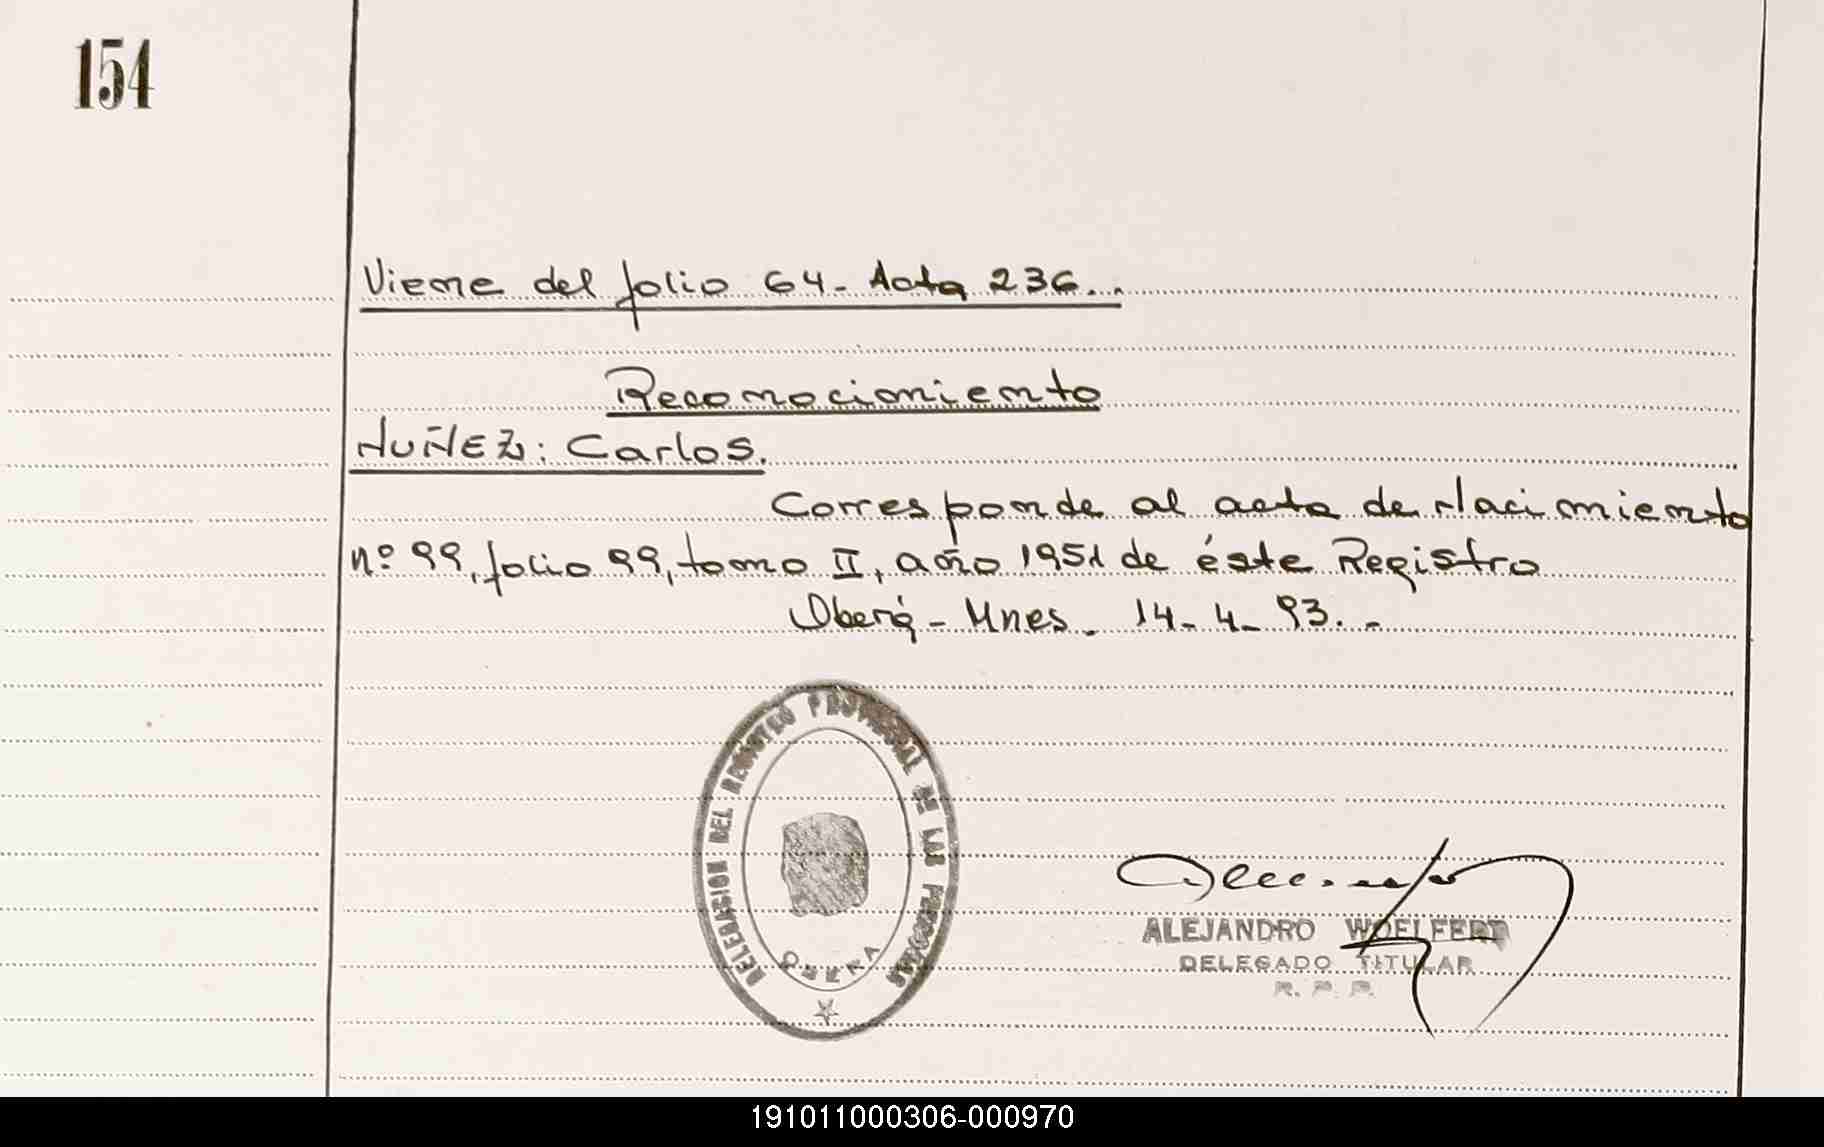 154
Viene del folio 64 - Acta 236...
Reconocimiento
NUÑEZ: Carlos.
Corresponde al acta de Nacimiento
nº 99, folio 99, tomo II, año 1951 de éste Registro
Oberá - Mnes. 14-4-93.-
DELEGACION DEL REGISTRO PROVINCIAL DE LAS PERSONAS
OBERA
ALEJANDRO WOELFERT
DELEGADO TITULAR
R. P. P.
191011000306-000970